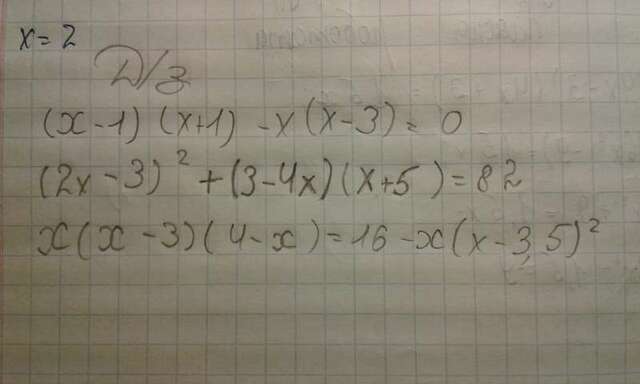 x = 2
Д/з
(x - 1) (x + 1) - x (x - 3) = 0
(2x - 3)² + (3 - 4x) (x + 5) = 82
x (x - 3) (4 - x) = 16 - x (x - 3,5)²